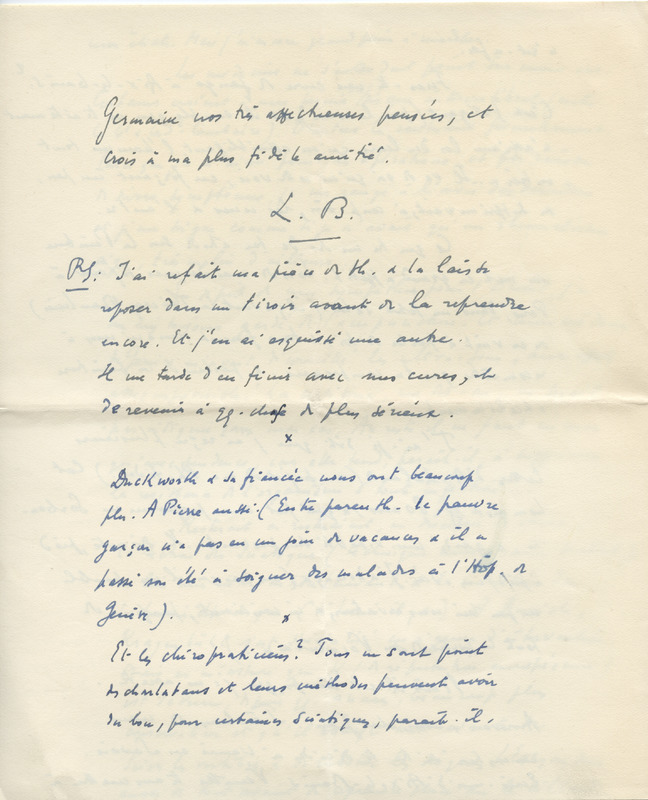 Germaine nos très affectueuses pensées, et
crois à ma plus fidèle amitié.
L. B.
PS: J'ai refait ma pièce de th. & la laisse
reposer dans un tiroir avant de la reprendre
encore. Et j'en ai esquissé une autre.
Il me tarde d'en finir avec mes cures, et
de revenir à qq. chose de plus sérieux.
x
Duckworth & sa fiancée nous ont beaucoup
plu. A Pierre aussi. (Entre parenth. le pauvre
garçon n'a pas eu un jour de vacances & il a
passé son été à soigner des malades à l'Hôp. de
Genève).
x
Et les chiropraticiens? Tous ne sont point
des charlatans et leurs méthodes peuvent avoir
du bon, pour certaines sciatiques, paraît-il.